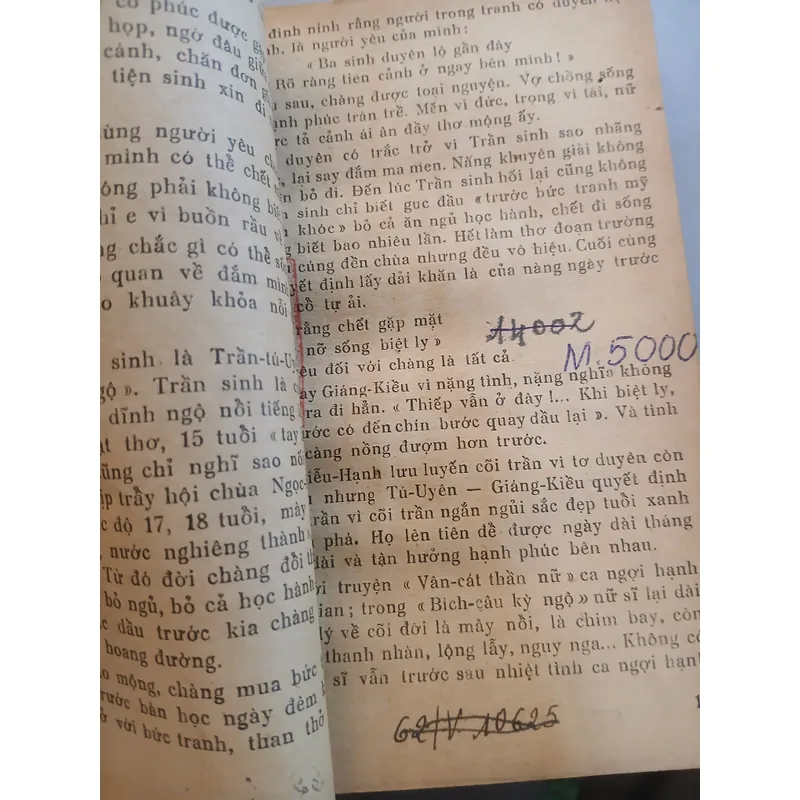 có phúc được gặ
họp, ngờ đâu giữ
cảnh, chăn đơn g
tiện sinh xin đi
ùng người yêu ch
mình có thể chết
óng phải không biế
hỉ e vì buồn rầu v
ng chắc gì có thể số
quan về đắm mìn
o khuây khỏa nỗi
sinh là Trần-tú-Uy
ngộ ». Trần sinh là c
dĩnh ngộ nổi tiếng
t thơ, 15 tuổi « tay
cũng chỉ nghĩ sao nố
ịp trầy hội chùa Ngọc-
c độ 17, 18 tuổi, mày
, nước nghiêng thành
Từ đó đời chàng đồi th
bỏ ngủ, bỏ cả học hành
c dầu trước kia chàng
hoang đường.
o mộng, chàng mua bức
rước bàn học ngày đêm
ở với bức tranh, than thở
đinh ninh rằng người trong tranh có duyên
nh, là người yêu của mình :
« Ba sinh duyên lộ gần đây
Rõ ràng tiên cảnh ở ngay bên mình ! »
sau, chàng được toại nguyện. Vợ chồng sống
ạnh phúc tràn trề. Mến vì đức, trọng vì tài, nữ
ực tả cảnh ái ân đầy thơ mộng ấy.
duyên có trắc trở vì Trần sinh sao nhãng
, lại say đắm ma men. Năng khuyên giải không
n bỏ đi. Đến lúc Trần sinh hối lại cũng không
sinh chỉ biết gục đầu « trước bức tranh mỹ
khóc » bỏ cả ăn ngủ học hành, chết đi sống
biết bao nhiêu lần. Hết làm thơ đoạn trường
cúng đền chùa nhưng đều vô hiệu. Cuối cùng
yết định lấy dải khăn là của nàng ngày trước
cổ tự ải.
rằng chết gặp mặt
nỡ sống biệt ly »
14002
êu đối với chàng là tất cả.
M. 5000
ay Giáng-Kiều vì nặng tình, nặng nghĩa không
ra đi hẳn. « Thiếp vẫn ở đây !... Khi biệt ly,
ước có đến chín bước quay đầu lại ». Và tình
càng nồng đượm hơn trước.
iễu-Hạnh lưu luyến cõi trần vì tơ duyên còn
nhưng Tú-Uyên — Giáng-Kiều quyết định
trần vì cõi trần ngắn ngủi sắc đẹp tuổi xanh
phá. Họ lên tiên để được ngày dài tháng
dài và tận hưởng hạnh phúc bên nhau.
ới truyện « Vân-cát thần nữ » ca ngợi hạnh
ian ; trong « Bich-câu kỳ ngộ » nữ sĩ lại dài
lý về cõi đời là mây nổi, là chim bay, còn
thanh nhàn, lộng lẫy, nguy nga... Không có
sĩ vẫn trước sau nhiệt tình ca ngợi hạnh
62/V. 10625